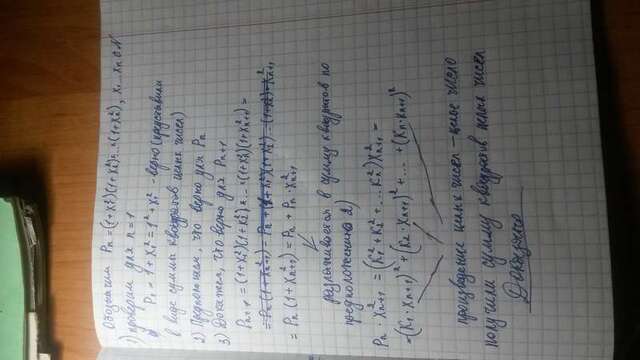 Обозначим Pn = (1+x₁²)(1+x₂²)·…·(1+xₙ²), x₁…xₙ ∈ N
1) проверим для n=1
P₁ = 1+x₁² = 1²+x₁² - верно (представили
в виде суммы квадратов целых чисел)
2) Предположим, что верно для Pn
3) Докажем, что верно для Pn+1
Pn+1 = (1+x₁²)(1+x₂²)·…·(1+xₙ²)(1+x²ₙ₊₁) =
= Pn (1+x²ₙ₊₁) = Pn + Pn · x²ₙ₊₁
разлагается в сумму квадратов по
предположению 2)
Pn · x²ₙ₊₁ = (K₁² + K₂² + … Kₙ²) x²ₙ₊₁ =
= (K₁ · xₙ₊₁)² + (K₂ · xₙ₊₁)² + … + (Kₙ · xₙ₊₁)²
произведение целых чисел — целое число
получили сумму квадратов целых чисел
Доказано